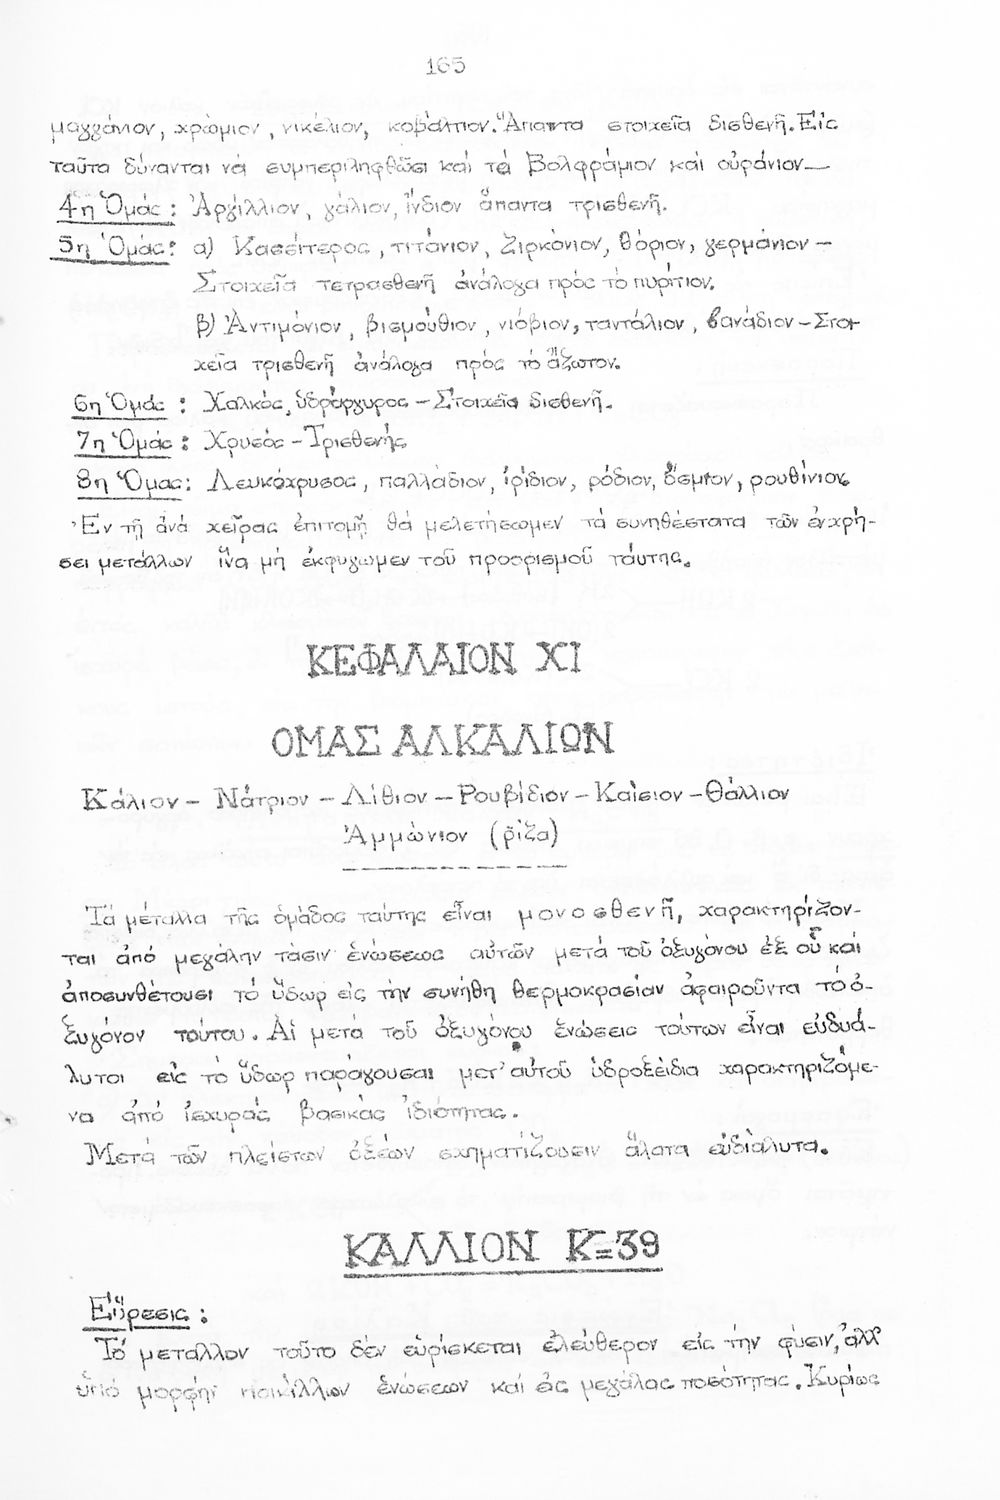 165
μαγγάνιον, χρώμιον, νικέλιον, κοβάλτιον. Ἅπαντα στοιχεῖα δισθενῆ. Εἰς
ταῦτα δύνανται νά συμπεριληφθῶσι καί τά Βολφράμιον καί οὐράνιον—
4η Ὁμάς: Ἀργίλλιον, γάλιον, ἴνδιον ἅπαντα τρισθενῆ.
5η Ὁμάς: α) Κασσίτερος, τιτάνιον, ζιρκόνιον, θόριον, γερμάνιον –
Στοιχεῖα τετρασθενῆ ἀνάλογα πρός τό πυρίτιον.
β) Ἀντιμόνιον, βισμούθιον, νιόβιον, ταντάλιον, βανάδιον – Στοι-
χεῖα τρισθενῆ ἀνάλογα πρός τό ἄζωτον.
6η Ὁμάς: Χαλκός, ὑδράργυρος – Στοιχεῖα δισθενῆ.
7η Ὁμάς: Χρυσός – Τρισθενής
8η Ὁμας: Λευκόχρυσος, παλλάδιον, ἰρίδιον, ρόδιον, ὄσμιον, ρουθίνιον.
Ἐν τῇ ἀνά χεῖρας ἐπιτομῇ θά μελετήσωμεν τά συνηθέστατα τῶν ἐν χρή-
σει μετάλλων ἵνα μή ἐκφύγωμεν τοῦ προορισμοῦ ταύτης.
ΚΕΦΑΛΑΙΟΝ XI
ΟΜΑΣ ΑΛΚΑΛΙΩΝ
Κάλιον – Νάτριον – Λίθιον – Ρουβίδιον – Καίσιον – Θάλλιον
Ἀμμώνιον (ρίζα)
Τά μέταλλα τῆς ὁμάδος ταύτης εἶναι μονοσθενῆ, χαρακτηρίζον-
ται ἀπό μεγάλην τάσιν ἑνώσεως αὐτῶν μετά τοῦ ὀξυγόνου ἐξ οὗ καί
ἀποσυνθέτουσι τό ὕδωρ εἰς τήν συνήθη θερμοκρασίαν ἀφαιροῦντα τό ὀ-
ξυγόνον τούτου. Αἱ μετά τοῦ ὀξυγόνου ἑνώσεις τούτων εἶναι εὐδιά-
λυτοι εἰς τό ὕδωρ παράγουσαι μετ' αὐτοῦ ὑδροξείδια χαρακτηριζόμε-
να ἀπό ἰσχυράς βασικάς ἰδιότητας.
Μετά τῶν πλείστων ὀξέων σχηματίζουσιν ἅλατα εὐδιάλυτα.
ΚΑΛΛΙΟΝ Κ=39
Εὕρεσις:
Τό μέταλλον τοῦτο δέν εὑρίσκεται ἐλεύθερον εἰς τήν φύσιν, ἀλλ'
ὑπό μορφήν ποικίλλων ἑνώσεων καί εἰς μεγάλας ποσότητας. Κυρίως